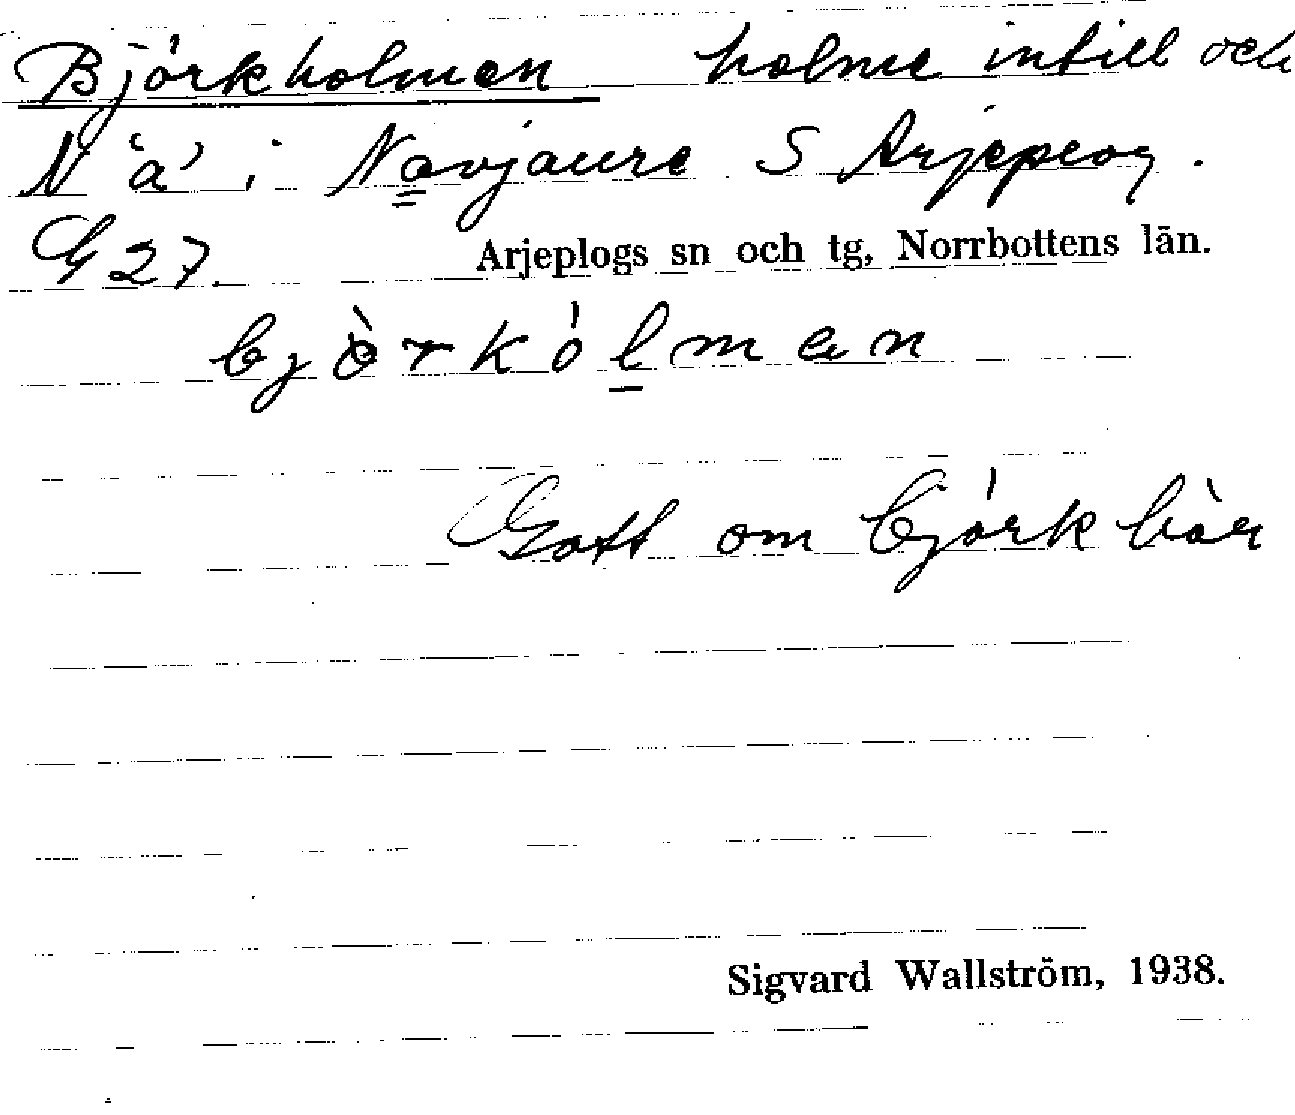 Björkholmen holme intill och
N "a" i Navjaure S Arjepeog.
G 27. Arjeplogs sn och tg, Norrbottens län.
bjòrkólmen
Gott om björkbär
Sigvard Wallström, 1938.